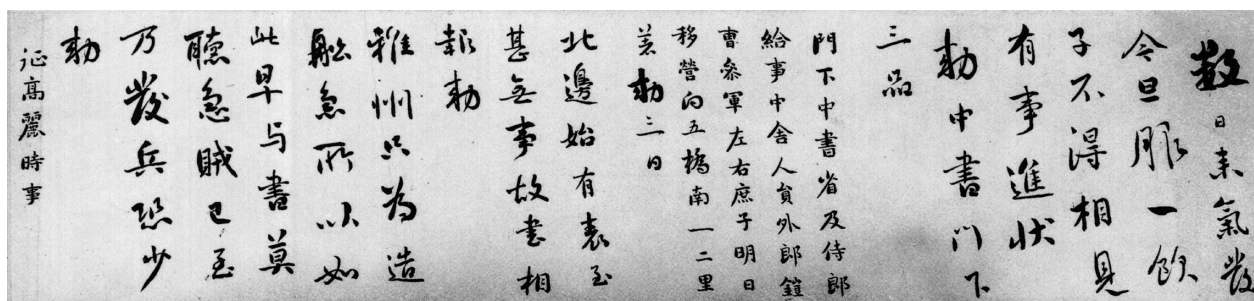 數日來氣發
今旦服一飲
子不得相見
有事進狀
勅中書門下
三品
門下中書省及侍郎
給事中舍人員外郎鎧
曹參軍左右庶子明日
移營向五橋南一二里
若勅三日
北邊始有表至
甚無事故書相
報勅
雅州只為造
船急所以如
此早与書莫
聽急賊已至
乃發兵恐少
勅
征高麗時事